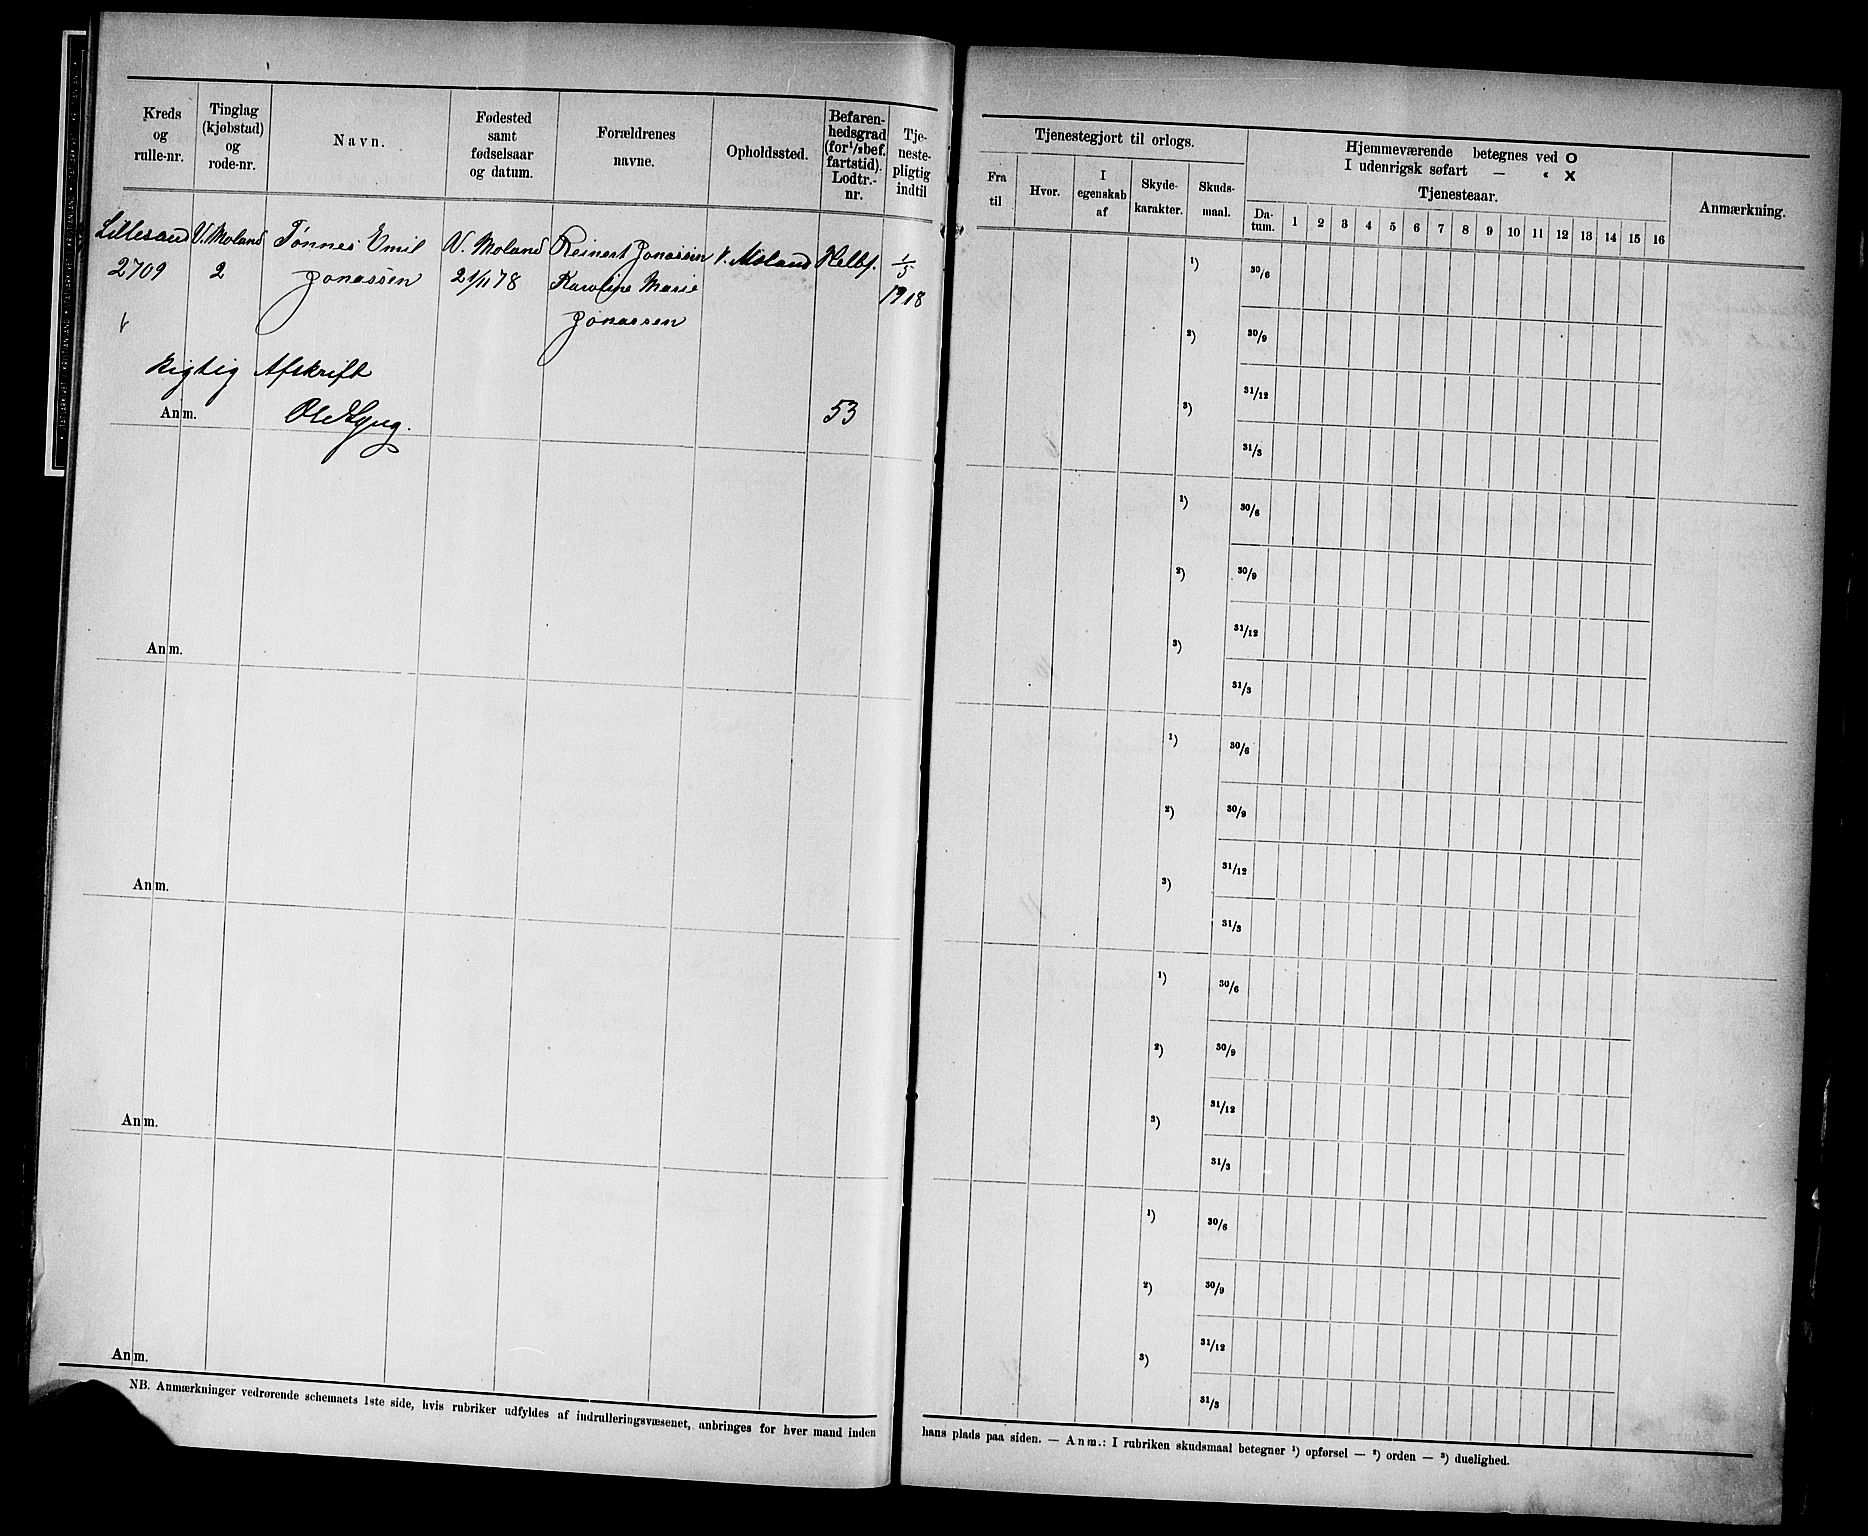 Kreds og rulle-nr.
Tinglag (kjøbstad) og rode-nr.
Navn.
Fødested samt fødselsaar og datum.
Forældrenes navne.
Opholdssted.
Befaren-hedsgrad (for 1/2 bef. fartstid). Lodtr.-nr.
Tje-neste-pligtig indtil
Lillesand V. Moland Tønnes Emil V. Moland Reinert Jonassen V. Moland Helbf. 1/5
2709 2 Jonassen 21/11 78 Karoline Marie 1918
Jonassen
Rigtig Afskrift
Anm. 53
Anm.
Anm.
Anm.
Anm.
NB. Anmærkninger vedrørende schemaets 1ste side, hvis rubriker udfyldes af indrulleringsvæsenet, anbringes for hver mand inden
Tjenestegjort til orlogs.
Fra til
Hvor.
I egenskab af
Skyde-karakter.
Skuds-maal.
Hjemmeværende betegnes ved O
I udenrigsk søfart — « X
Tjenesteaar.
Da-tum. 1 2 3 4 5 6 7 8 9 10 11 12 13 14 15 16
Anmærkning.
1) 30/6
2) 30/9
3) 31/12
31/3
1) 30/6
2) 30/9
3) 31/12
31/3
1) 30/6
2) 30/9
3) 31/12
31/3
1) 30/6
2) 30/9
3) 31/12
31/3
1) 30/6
2) 30/9
3) 31/12
31/3
hans plads paa siden. — Anm.: I rubriken skudsmaal betegner 1) opførsel — 2) orden — 3) duelighed.